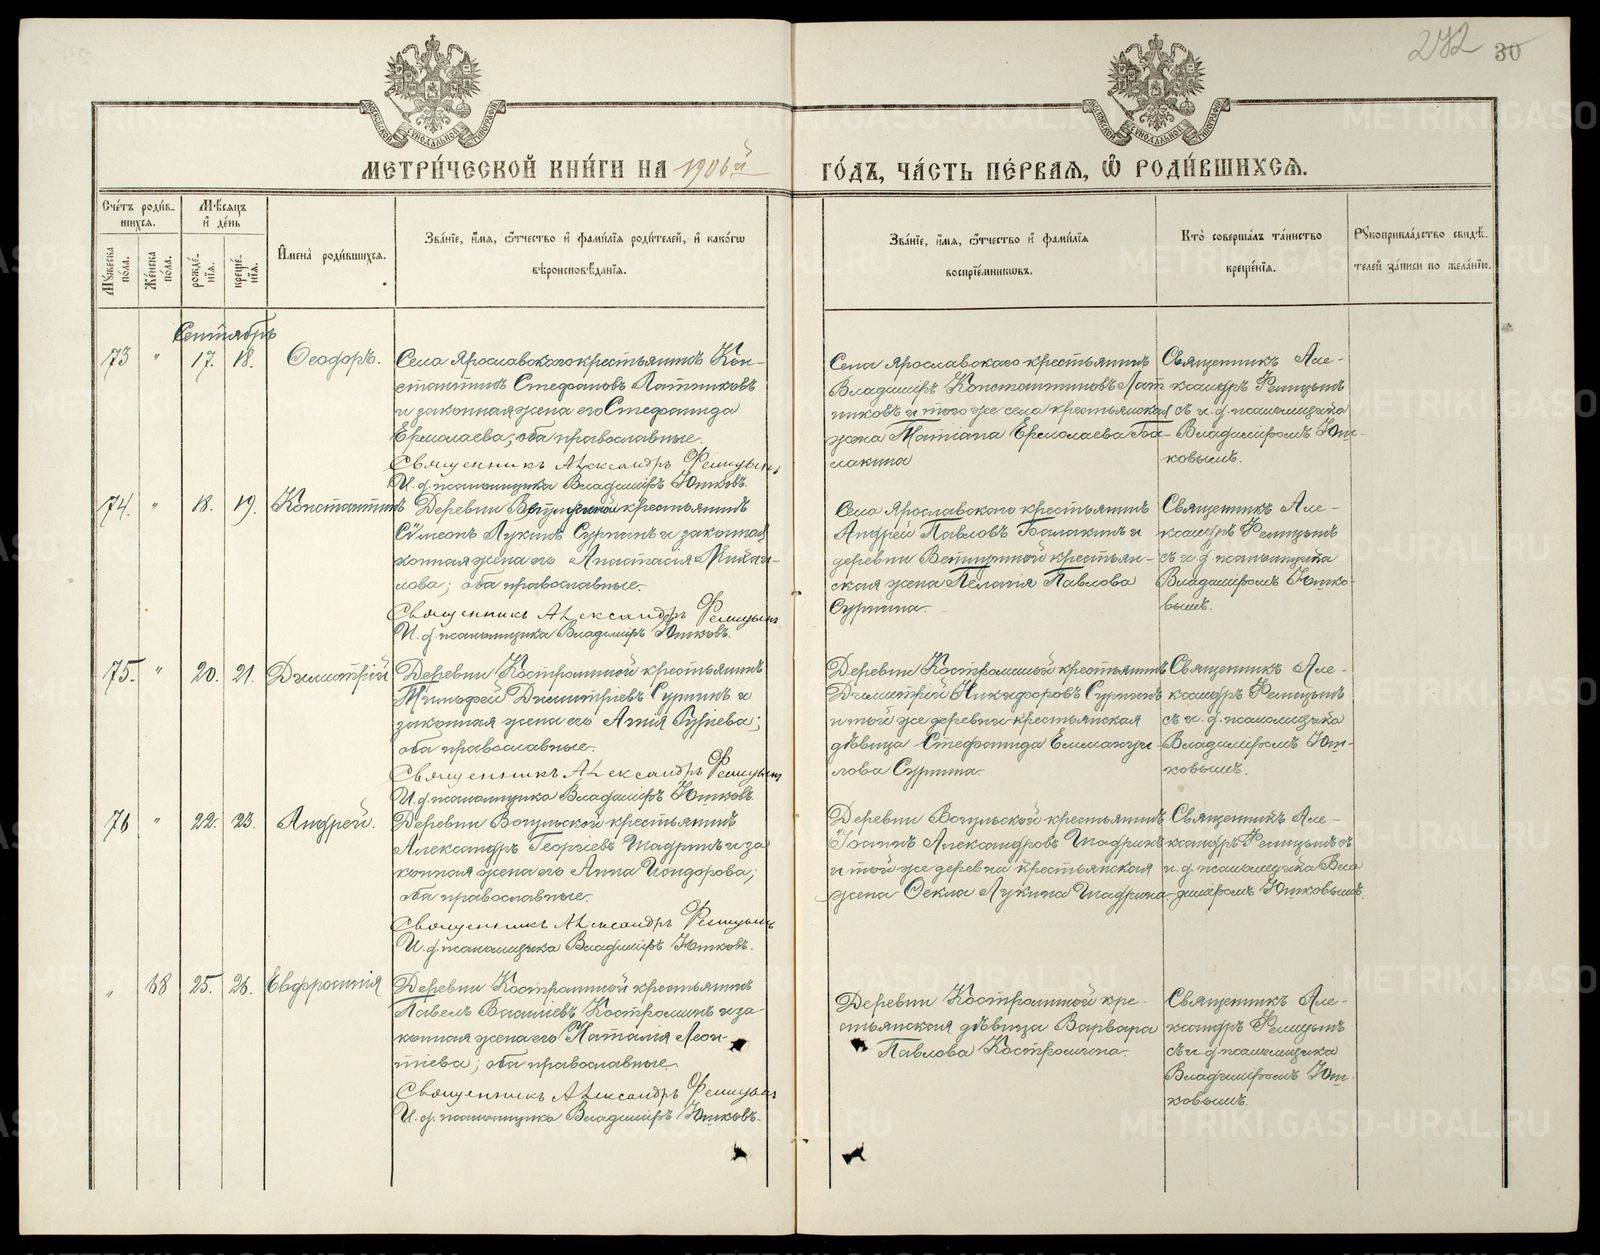 282 30
МЕТРИ́ЧЕСКОЙ КНИ́ГИ НА 1906й ГО́ДЪ, ЧА́СТЬ ПЕ́РВАЯ, Ѡ҆ РОДИ́ВШИХСЯ.
Сче́тъ роди́в-
шихся.
Му́жеска по́ла.
Же́нска по́ла.
Мѣ́сяцъ
и҆ де́нь
рожде́-
нїя.
креще́-
нїя.
И҆мена̀ роди́вшихся.
Зва́нїе, и҆́мя, ѻ҆́тчество и҆ фами́лїя роди́телей, и҆ како́гѡ
вѣроисповѣ́данїя.
Зва́нїе, и҆́мя, ѻ҆́тчество и҆ фами́лїя
воспрїе́мниковъ.
Кто̀ соверша́лъ та́инство
креще́нїя.
Рꙋкоприкла́дство свидѣ́-
телей за́писи по жела́нїю.
Сентябрь
73 " 17. 18. Ѳеодоръ.
Села Ярославскаго крестьянинъ Кон-
стантинъ Стефановъ Латниковъ
и законная жена его Стефанида
Ермолаева, оба православные.
Священникъ Александръ Фелицынъ
И. д. псаломщика Владиміръ Юшковъ.
Села Ярославскаго крестьянинъ
Владиміръ Константиновъ Лат
никовъ и того же села крестьянская
жена Татіана Ермолаева Ба-
лакина
Священникъ Але-
ксандръ Фелицынъ
съ и. д. псаломщика
Владиміромъ Юш-
ковымъ.
74. " 18. 19. Константинъ
Деревни крестьянинъ
Сѵмеонъ Лукинъ Сурнинъ и законная
конная жена его Анастасія Михаи-
лова; оба православные.
Священникъ Александръ Фелицынъ
И. д. псаломщика Владиміръ Юшковъ.
Села Ярославского крестьянинъ
Андрей Павловъ Балакинъ и
деревни крестьян-
ская жена Пелагія Павлова
Сурнина.
Священникъ Але-
ксандръ Фелицынъ
съ и. д. псаломщика
Владиміромъ Юшко-
вымъ.
75. " 20. 21. Димитрій
Деревни Костроминой крестьянинъ
Тимофей Димитріевъ Сурнинъ и
законная жена его Гуріева;
оба православные.
Священникъ Александръ Фелицынъ
И. д. псаломщика Владиміръ Юшковъ.
Деревни Костроминой крестьянинъ
Димитрій Никифоровъ Сурнинъ
и той же деревни крестьянская
дѣвица Стефанида Еммануи-
лова Сурнина.
Священникъ Але-
ксандръ Фелицынъ
съ и. д. псаломщика
Владиміромъ Юш-
ковымъ.
76 " 22. 23. Андрей.
Деревни Вогульской крестьянинъ
Александръ Георгіевъ Шадринъ и за
конная жена его Анна Исидорова;
оба православные.
Священникъ Александръ Фелицынъ
И. д. псаломщика Владиміръ Юшковъ.
Деревни Вогульской крестьянинъ
Іоаннъ Александровъ Шадринъ
и той же деревни крестьянская
жена Ѳекла Лукина Шадрина
Священникъ Але-
ксандръ Фелицынъ съ
и. д. псаломщика Вла
диміромъ Юшковымъ.
" 68 25. 26. Евфросинія
Деревни Костроминой крестьянинъ
Павелъ Василіевъ Костроминъ и за
конная жена его Наталія Леон
тіева; оба православные.
Священникъ Александръ Фелицынъ
И. д. псаломщика Владиміръ Юшковъ.
Деревни Костроминой кре-
стьянская дѣвица Варвара
Павлова Костромина.
Священникъ Але-
ксандръ Фелицынъ
съ и. д. псаломщика
Владиміромъ Юш-
ковымъ.
METRIKI.GASO-URAL.RU